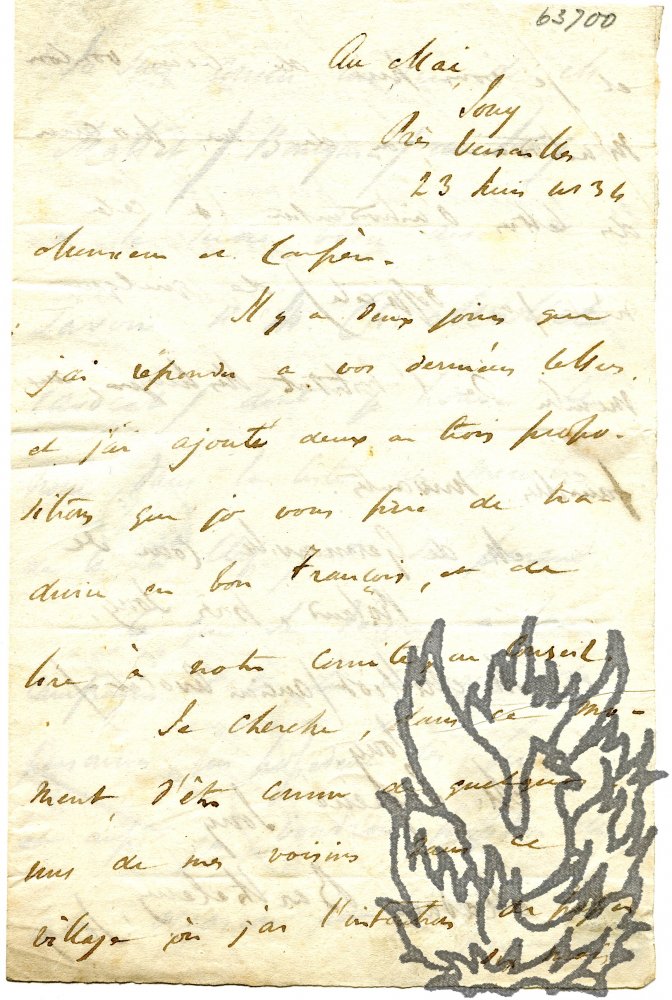 63700
Au Mai
Jouy
Près Versailles
23 Juin 1834
Monsieur et Confrère.
Il y a deux jours que
j'ai répondu a vos dernières lettres
et j'ai ajouté deux ou trois propo-
sitions que je vous prie de tra-
duire en bon François, et de
lire à notre comité, ou conseil.
Je cherche, dans ce mo-
ment, d'être connu de quelques
uns de mes voisins dans ce
village où j'ai l'intention de passer